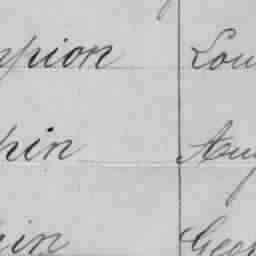 pion Lou
hin Aug
in Geo